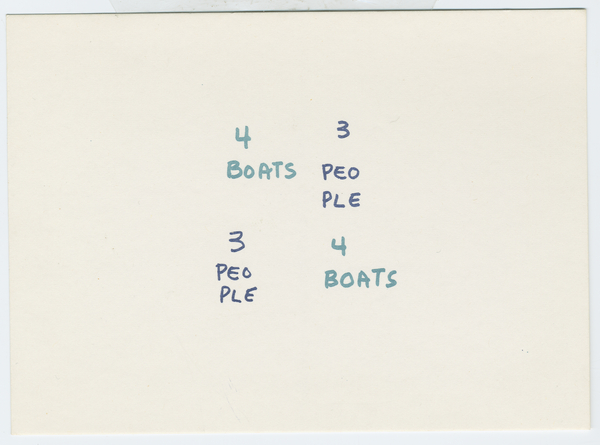 4 3
BOATS PEO
PLE
3 4
PEO BOATS
PLE